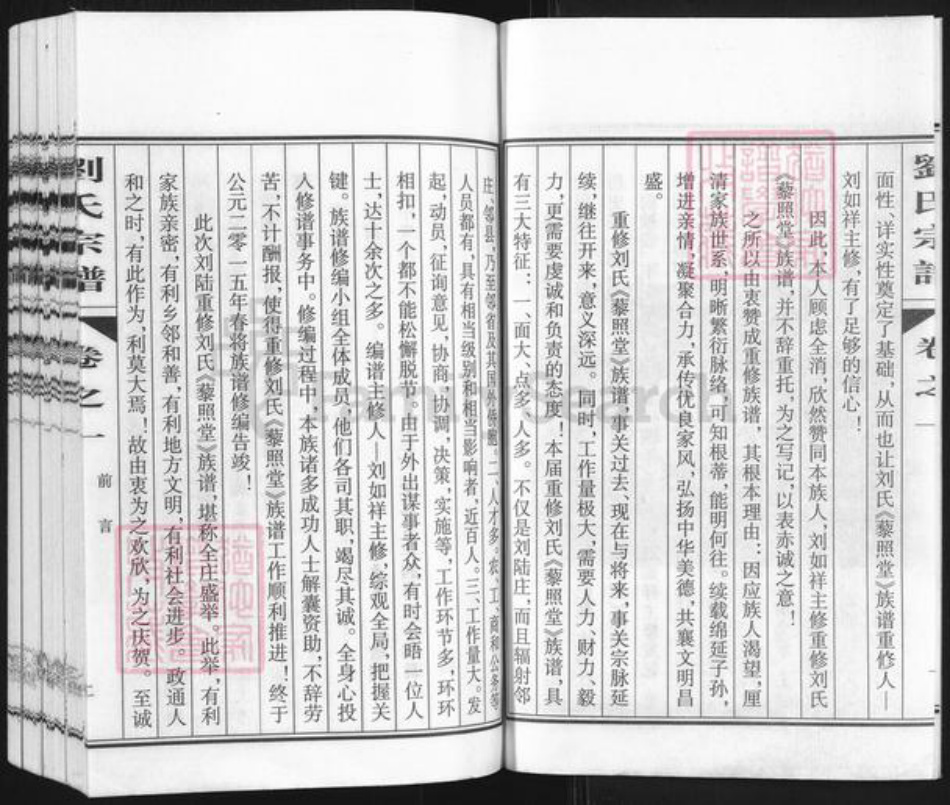 劉氏宗譜
卷之一
面性、详实性奠定了基础，从而也让刘氏《藜照堂》族谱重修人—
刘如祥主修，有了足够的信心！
因此，本人顾虑全消，欣然赞同本族人，刘如祥主修重修刘氏
《藜照堂》族谱，并不辞重托，为之写记，以表赤诚之意！
之所以由衷赞成重修族谱，其根本理由：因应族人渴望，厘
清家族世系，明晰繁衍脉络，可知根蒂，能明何往。续载绵延子孙，
增进亲情，凝聚合力，承传优良家风，弘扬中华美德，共襄文明昌
盛。
重修刘氏《藜照堂》族谱，事关过去、现在与将来，事关宗脉延
续，继往开来，意义深远。同时，工作量极大，需要人力、财力、毅
力，更需要虔诚和负责的态度！本届重修刘氏《藜照堂》族谱，具
有三大特征：一、面大、点多、人多。不仅是刘陆庄，而且辐射邻
庄、邻县，乃至邻省及其国外侨胞。二、人才多。农、工、商和公务等
人员都有，具有相当级别和相当影响者，近百人。三、工作量大。发
起，动员，征询意见，协商，协调，决策，实施等，工作环节多，环环
相扣，一个都不能松懈脱节。由于外出谋事者众，有时会晤一位人
士，达十余次之多。编谱主修人—刘如祥主修，综观全局，把握关
键。族谱修编小组全体成员，他们各司其职，竭尽其诚。全身心投
入修谱事务中。修编过程中，本族诸多成功人士解囊资助，不辞劳
苦，不计酬报，使得重修刘氏《藜照堂》族谱工作顺利推进！终于
公元二零一五年春将族谱修编告竣！
此次刘陆重修刘氏《藜照堂》族谱，堪称全庄盛举。此举，有利
家族亲密，有利乡邻和善，有利地方文明，有利社会进步。政通人
和之时，有此作为，利莫大焉！故由衷为之欢欣，为之庆贺。至诚
劉氏宗譜
卷之一
前言
七
FamilySearch